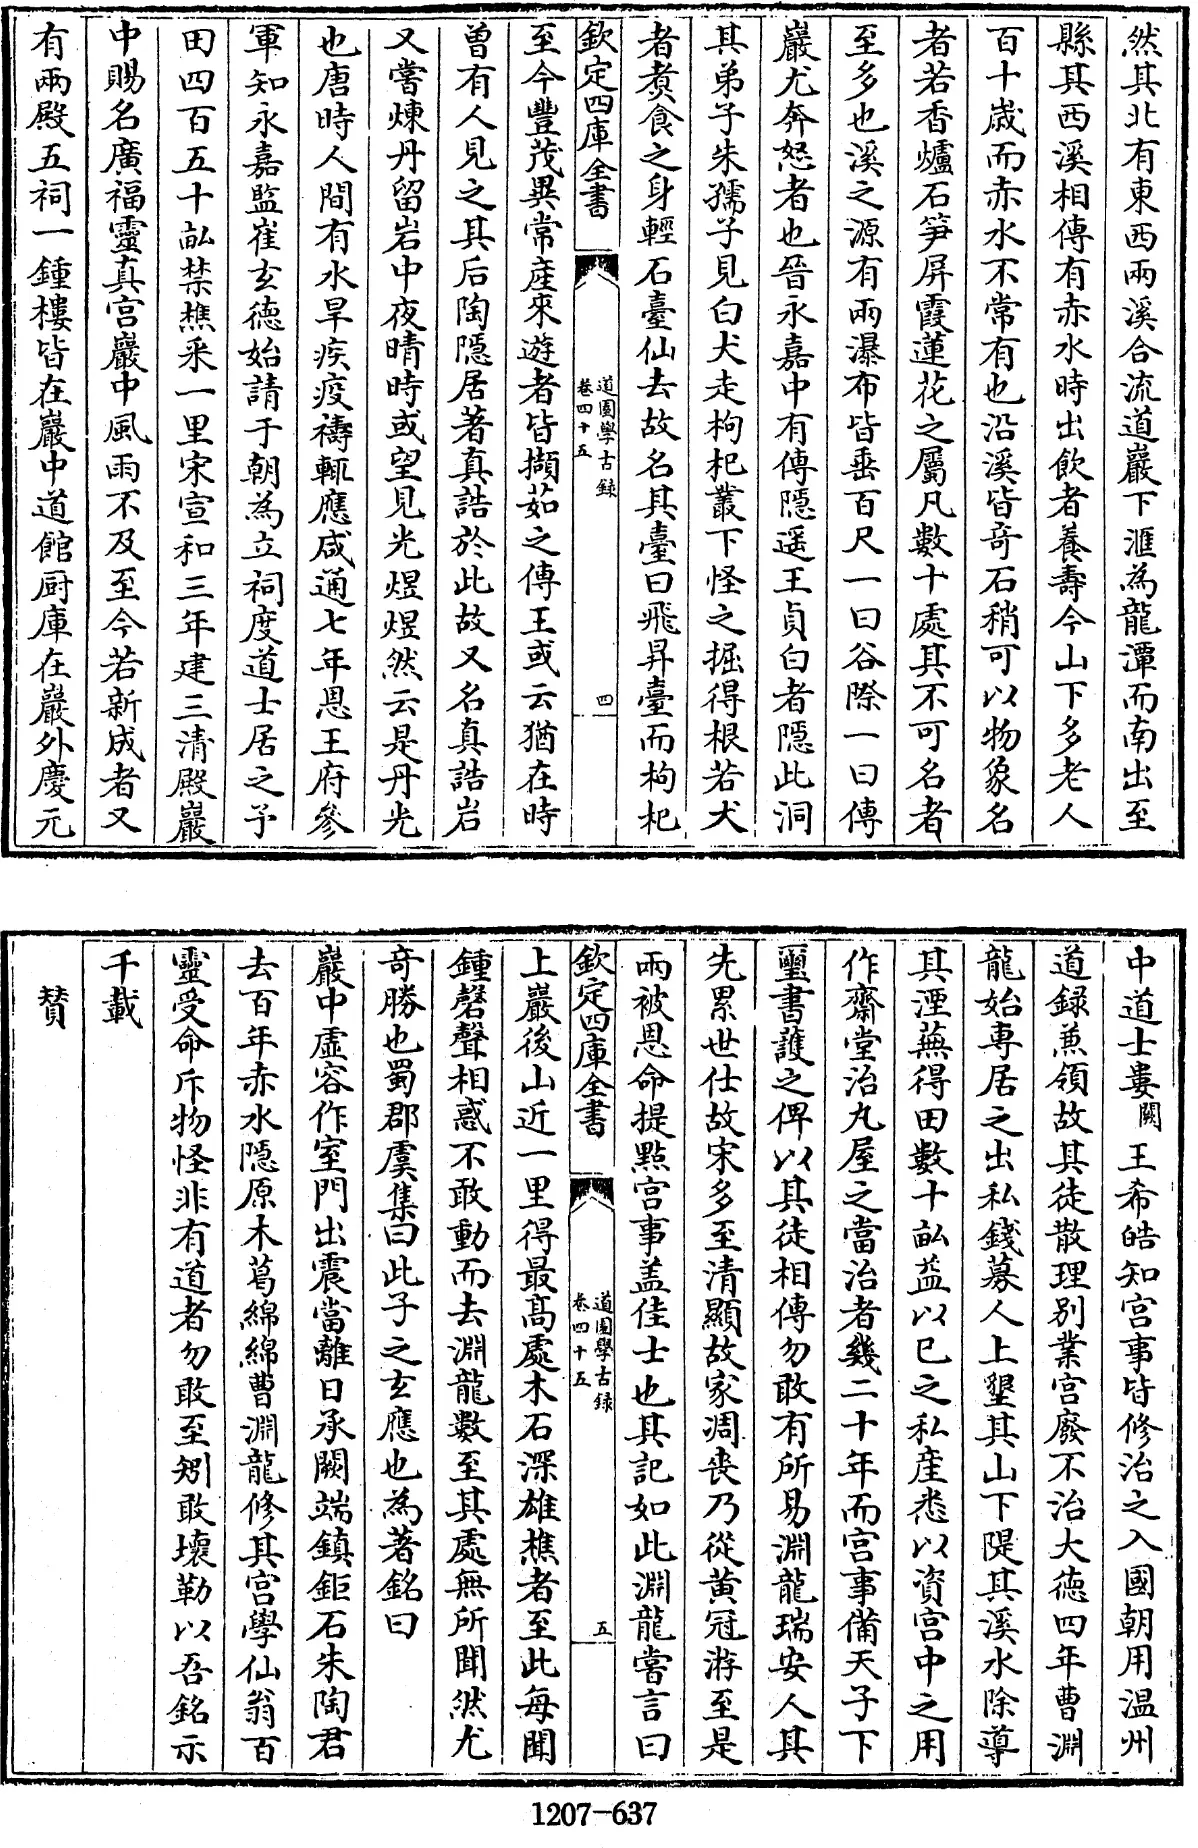 然其北有東西兩溪合流道巖下滙為龍潭而南出至
縣其西溪相傳有赤水時出飲者養壽今山下多老人
百十歲而赤水不常有也沿溪皆竒石稍可以物象名
者若香爐石笋屏霞蓮花之屬凡數十處其不可名者
至多也溪之源有兩瀑布皆垂百尺一曰谷際一曰傳
巖尤奔怒者也晉永嘉中有傳隱遥王貞白者隱此洞
其弟子朱孺子見白犬走枸杞叢下怪之掘得根若犬
者煑食之身輕石臺仙去故名其臺曰飛昇臺而枸杞
欽定四庫全書
道園學古録
卷四十五
四
至今豐茂異常産來遊者皆擷茹之傳王或云猶在時
曽有人見之其后陶隱居著真誥於此故又名真誥岩
又嘗煉丹留岩中夜晴時或望見光煜煜然云是丹光
也唐時人間有水旱疾疫禱輒應咸通七年恩王府參
軍知永嘉監崔玄德始請于朝為立祠度道士居之予
田四百五十畝禁樵采一里宋宣和三年建三清殿巖
中賜名廣福靈真宫巖中風雨不及至今若新成者又
有兩殿五祠一鍾樓皆在巖中道館厨庫在巖外慶元
中道士婁闕王希皓知宫事皆修治之入國朝用温州
道録兼領故其徒散理别業宫廢不治大徳四年曹淵
龍始專居之出私錢募人上墾其山下隄其溪水除導
其湮蕪得田數十畝益以已之私産悉以資宫中之用
作齋堂治九屋之當治者幾二十年而宫事備天子下
璽書護之俾以其徒相傳勿敢有所易淵龍瑞安人其
先累世仕故宋多至清顯故家凋喪乃從黄冠游至是
兩被恩命提點宫事盖佳士也其記如此淵龍嘗言曰
欽定四庫全書
道園學古録
卷四十五
五
上巖後山近一里得最髙處木石深雄樵者至此每聞
鍾磬聲相惑不敢動而去淵龍數至其處無所聞然尤
竒勝也蜀郡虞集曰此子之玄應也為著銘曰
巖中虚容作室門出震當離日承闕端鎮鉅石朱陶君
去百年赤水隱原木葛綿綿曹淵龍修其宫學仙翁百
靈受命斥物怪非有道者勿敢至矧敢壞勒以吾銘示
千載
賛
1207-637